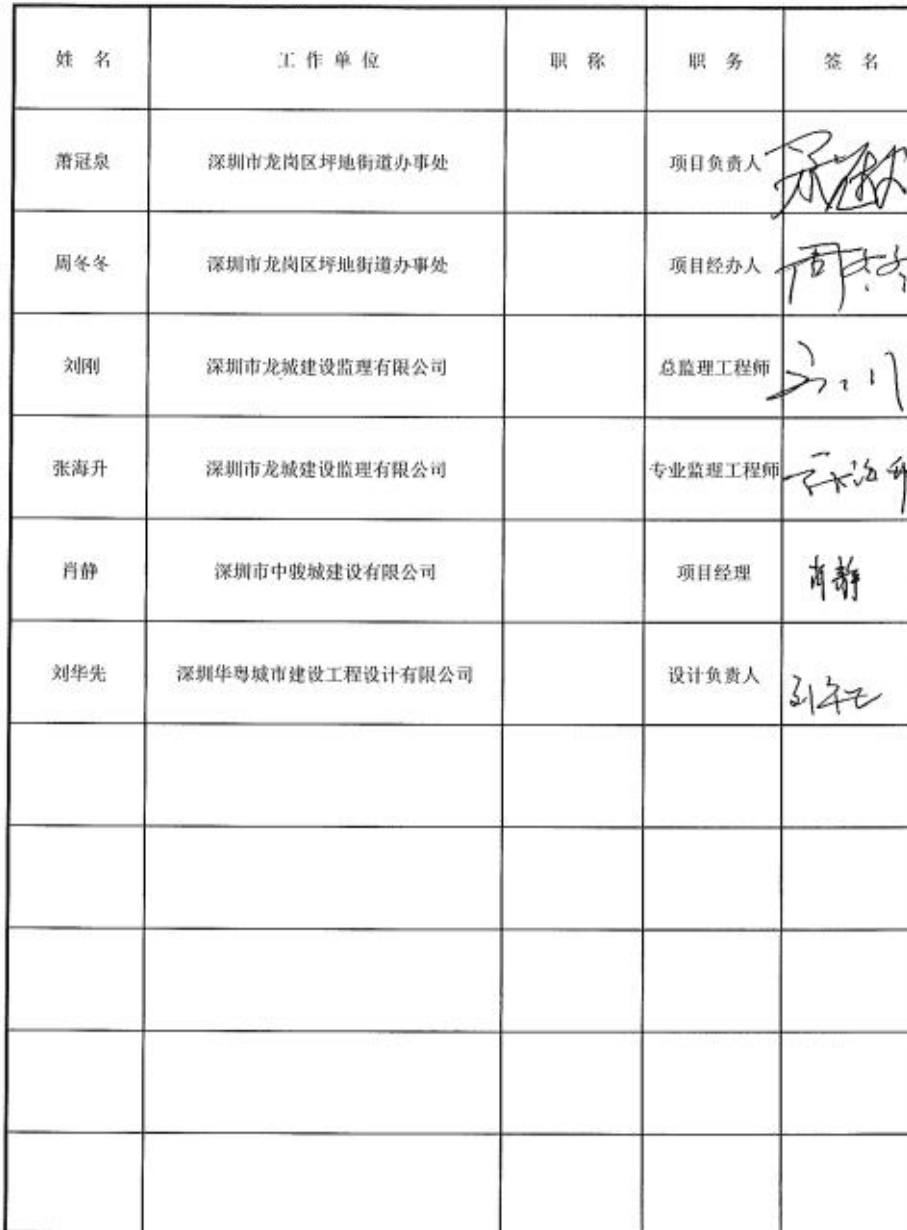 姓 名 工 作 单 位 职 称 职 务 签 名
萧冠泉 深圳市龙岗区坪地街道办事处 项目负责人
周冬冬 深圳市龙岗区坪地街道办事处 项目经办人 周冬冬
刘刚 深圳市龙城建设监理有限公司 总监理工程师
张海升 深圳市龙城建设监理有限公司 专业监理工程师 张海升
肖静 深圳市中骏城建设有限公司 项目经理 肖静
刘华先 深圳华粤城市建设工程设计有限公司 设计负责人